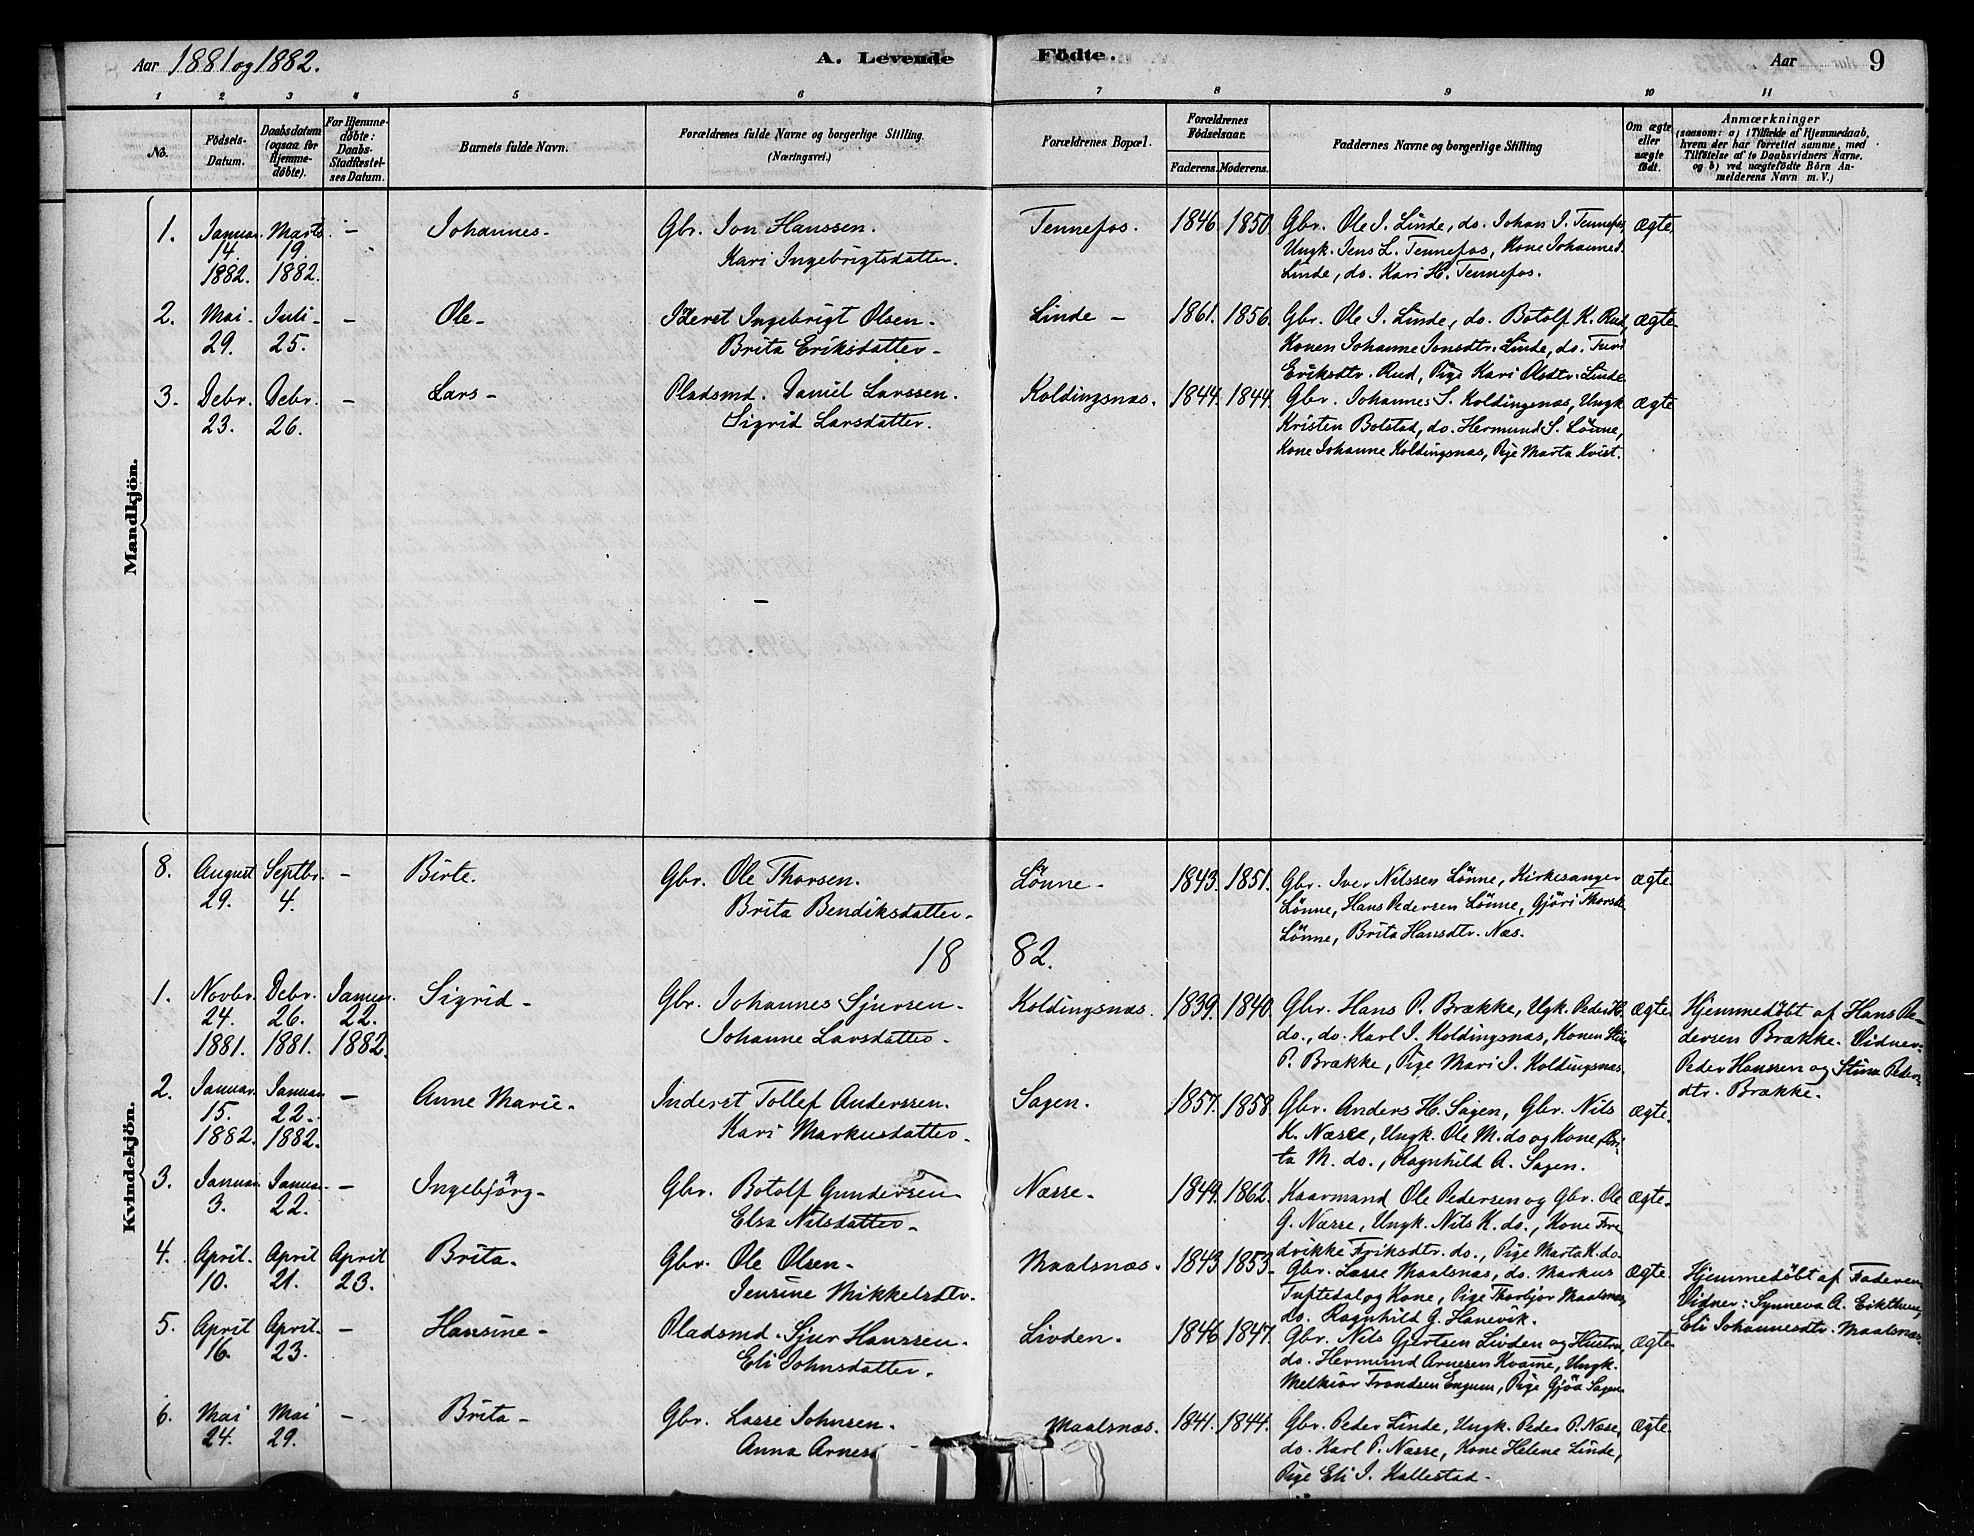 Aar 1881 og 1882.
A. Levende Födte.
Aar 9
1 2 3 4 5 6 7 8 9 10 11
No.
Födsels-Datum.
Daabsdatum (ogsaa for Hjemme-döbte).
For Hjemme-döbte: Daabs-Stadfæstel-ses Datum.
Barnets fulde Navn.
Forældrenes fulde Navne og borgerlige Stilling. (Næringsvei.)
Forældrenes Bopæl.
Forældrenes Födselsaar.
Faderens. Moderens.
Faddernes Navne og borgerlige Stilling
Om ægte eller uægte födt.
Anmærkninger
(saasom: a) i Tilfælde af Hjemmedaab,
hvem der har forrettet samme, med
Tilföielse af to Daabsvidners Navne.
og b) ved uægtefödte Börn An-
melderens Navn m. V.)
Mandkjön.
1. Januar. Marts. – Johannes. Gbr. Jon Hanssen. Tennefos. 1846. 1850. Gbr. Ole I. Linde, do. Johan I. Tennefos, Ægte.
14. 19. Kari Ingebrigtsdatter. Ungk. Jens L. Tennefos, Kone Johanne I.
1882. 1882. Linde, do. Kari H. Tennefos.
2. Mai. Juli – – Ole – Inderst Ingebrigt Olsen. Linde – 1861. 1856. Gbr. Ole I. Linde, do. Botolf K. Rud, Ægte.
29. 25. Brita Eriksdatter – Konen Johanne Jonsdtr. Linde, do. Turi
Eriksdtr. Rud, Pige Kari Olsdtr. Linde
3. Debr. Debr. – Lars – Pladsmd. Daniel Larssen. Koldingsnæs. 1844. 1844. Gbr. Johannes S. Koldingsnæs, Ungk. Ægte
23. 26. Sigrid Larsdatter. Kristen Bolstad, do. Hermund S. Lönne,
Kone Johanne Koldingsnæs, Pige Marta Kvist.
Kvindekjön.
8. August Septbr. – Birte. Gbr. Ole Thorsen. Lönne – 1843. 1851. Gbr. Iver Nilssen Lönne, Kirkesanger Ægte.
29. 4. Brita Bendiksdatter. Lönne, Hans Pedersen Lönne, Gjöri Thorsdtr.
Lönne, Brita Hansdtr. Næs.
1882.
1. Novbr. Debr. Januar. Sigrid – Gbr. Johannes Sjursen. Koldingsnæs. 1839. 1840. Gbr. Hans P. Brække, Ugk. Peder H. Ægte. Hjemmedöbt af Hans Pe-
24. 26. 22. Johanne Larsdatter. do., do. Karl I. Koldingsnæs, Konen Stina dersen Brække. Vidner:
1881. 1881. 1882. P. Brække, Pige Mari I. Koldingsnæs. Peder Hanssen og Stina Peders-
dtr. Brække.
2. Januar. Januar – Anne Marie. Inderst Tollef Anderssen. Sagen. 1857. 1858. Gbr. Anders H. Sagen, Gbr. Nils Ægte.
15. 22. Kari Markusdatter. K. Næsse, Ungk. Ole M. do og Kone Bri-
1882. 1882. ta M. do., Ragnhild A. Sagen.
3. Januar. Januar – Ingebjörg – Gbr. Botolf Gundersen Næsse. 1849. 1862. Kaarmand Ole Pedersen og Gbr. Ole Ægte.
3. 22. Elsa Nilsdatter – G. Næsse, Ungk. Nils K. do., Kone Fre
dvikke Eriksdtr. do., Pige Marta K. do.
4. April. April April Brita. Gbr. Ole Olsen. Maalsnæs. 1843 1853. Gbr. Lasse Maalsnæs, do. Markus Ægte. Hjemmedöbt af Faderen
10. 21. 23. Jensine Mikkelsdtr. Tuftedal og Kone, Pige Thorbjor Maalsnæs, Vidner: Synneva A. Eikthun,
do. Ragnhild G. Hanevik. Eli Johannesdtr. Maalsnæs.
5. April April. – Hansine – Pladsmd. Sjur Hanssen. Livden. 1846. 1847. Gbr. Nils Gjertsen Livden og Hustru, Ægte.
16. 23. Eli Johnsdatter. do. Hermund Arnesen Kvame, Ungk.
Melkior Trondsen Engum, Pige Gjöa Sagen
6. Mai Mai – Brita – Gbr. Lasse Johnsen. Maalsnæs. 1841. 1844. Gbr. Peder Linde, Ungk. Peder P. Næsse, Ægte.
24. 29. Anna Arnes do. Karl P. Næsse, Kone Helene Linde,
Pige Eli I. Kallestad –